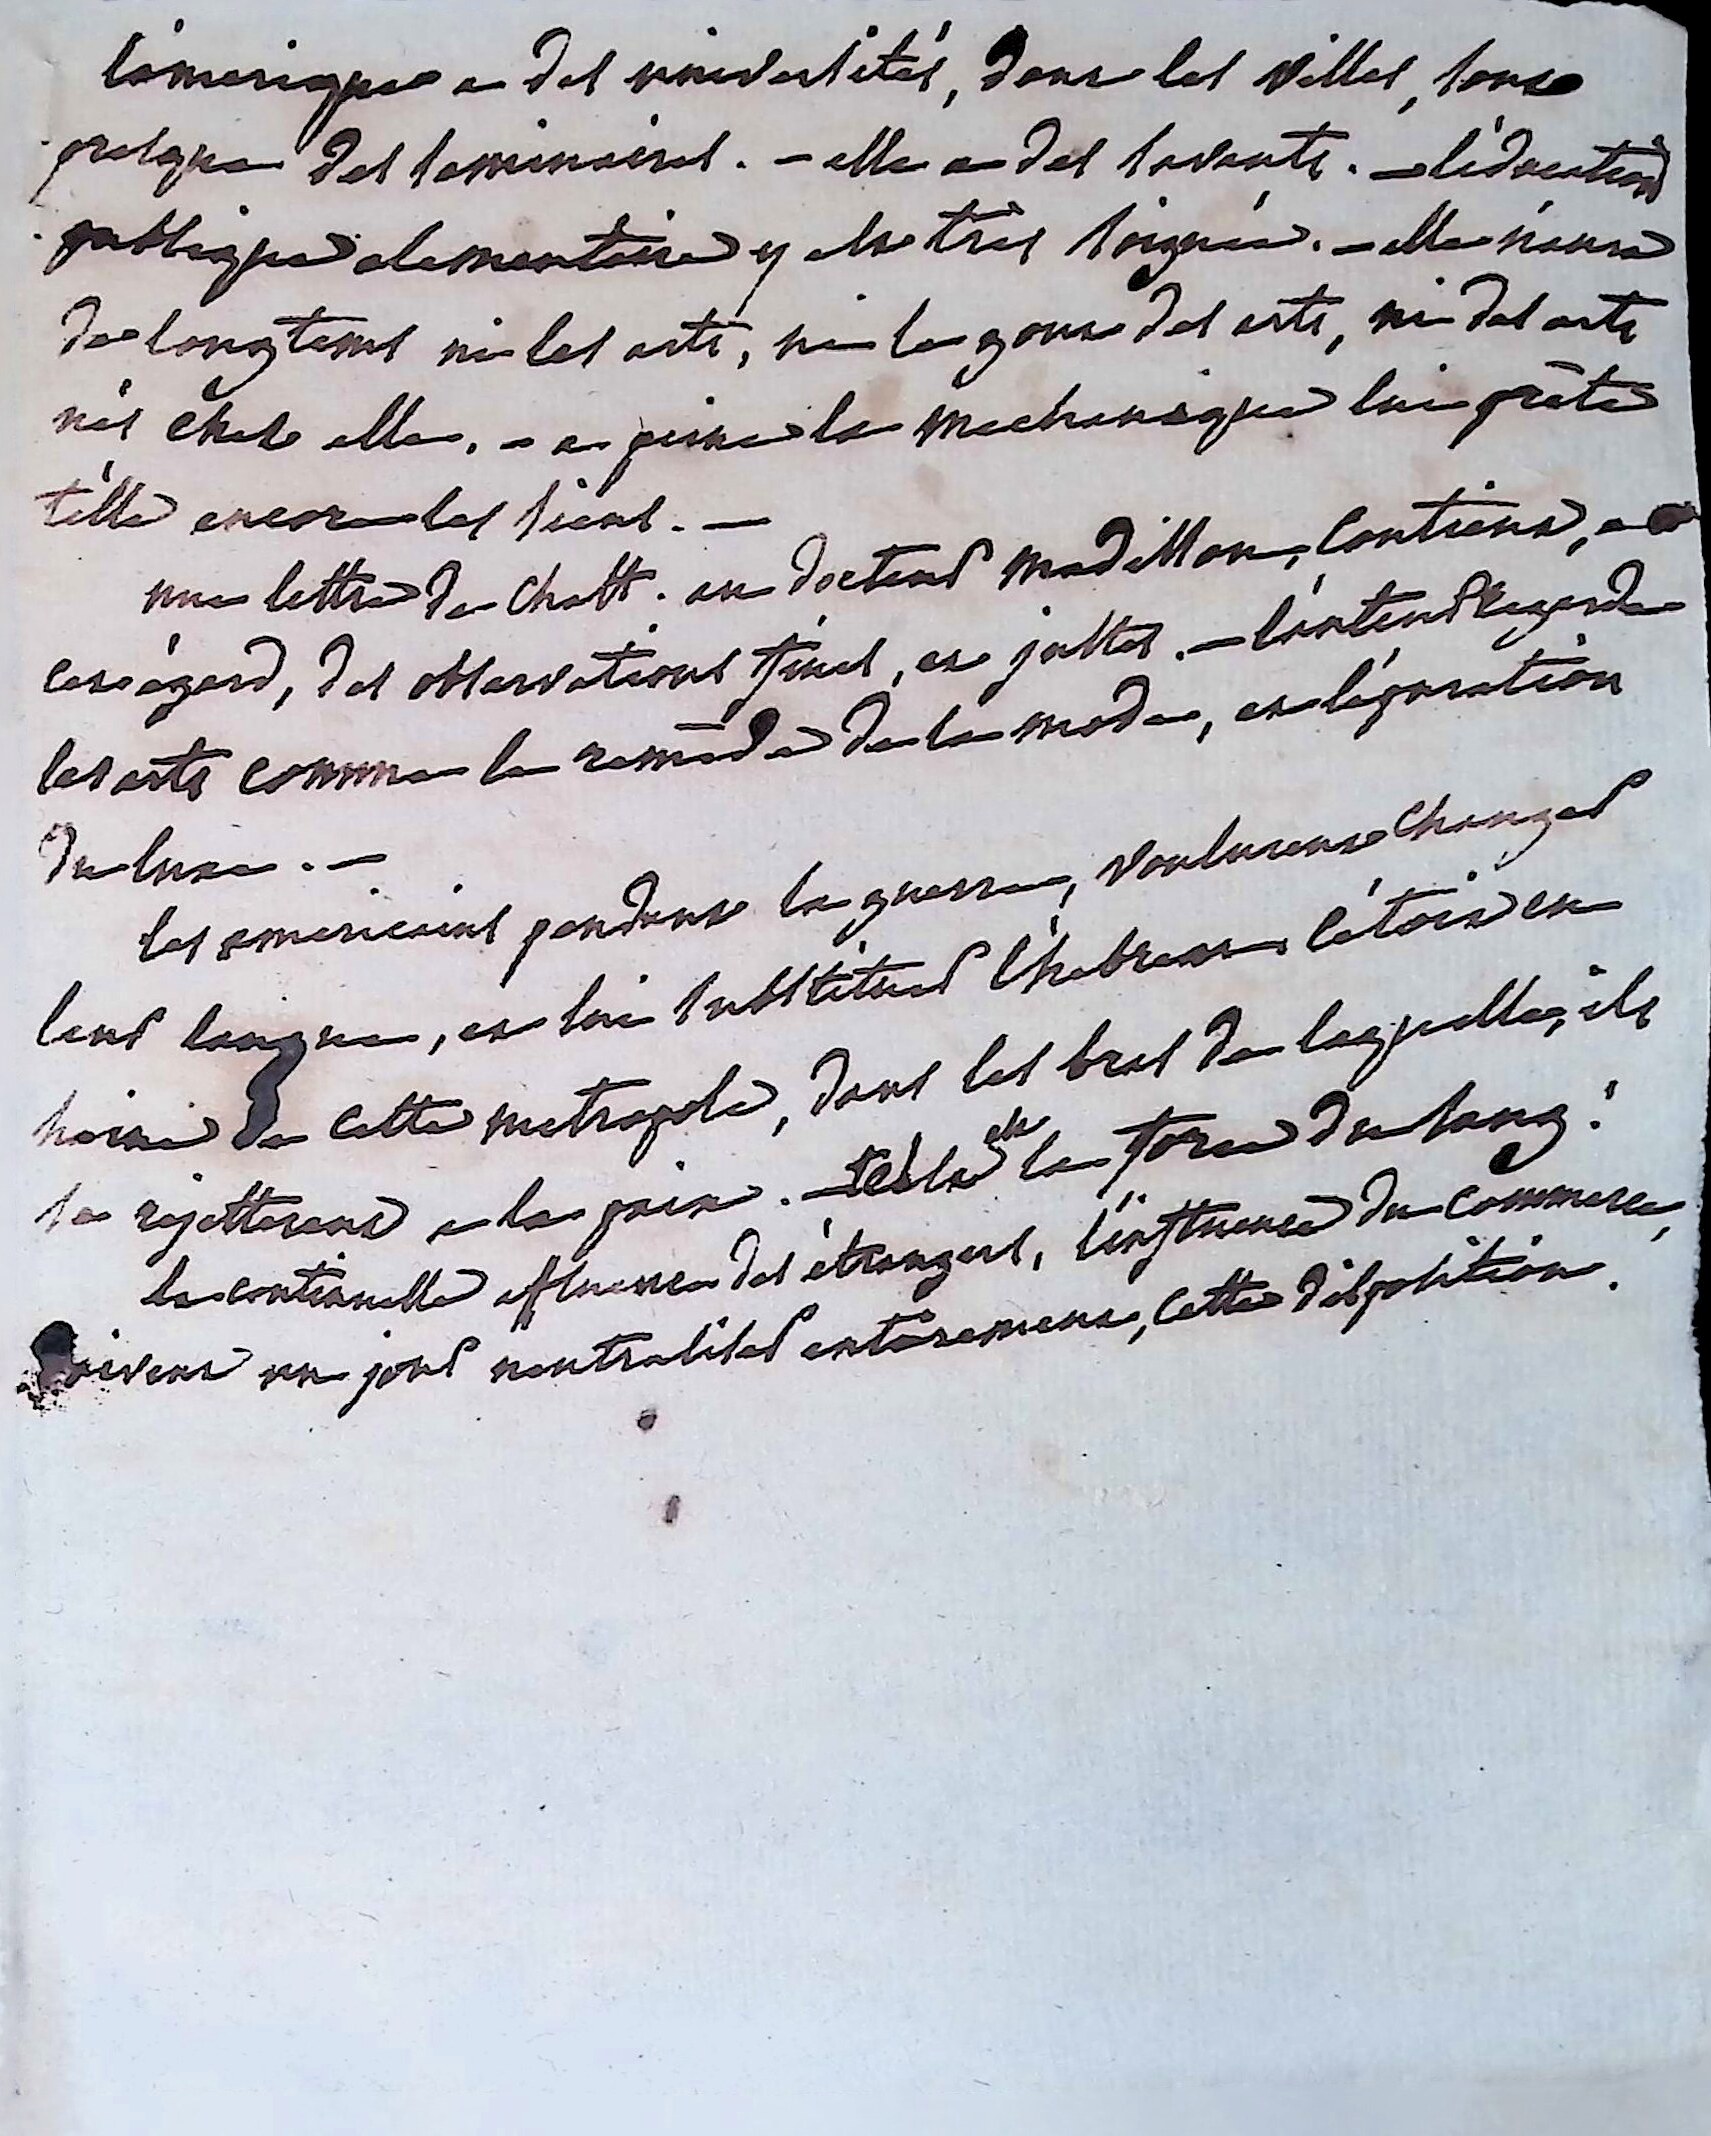 l'amerique a des universités, dans les villes, sont
presque des seminaires. - elle a des savants. - l'éducation
publique elementaire y est très soignée. - elle n'aura
de longtems ni les arts, ni le gout des arts, ni des arts
nés chez elle. - a peine la mechanique lui prête
t'elle encore les siens. -
une lettre de Chatt. au docteur madisson, contient, a
cet égard, des observations fines, et justes. - l'auteur regarde
les arts comme le remède de la mode, et l'épuration
du luxe. -
les americains pendant la guerre, voulurent changer
leur langue, et lui substituer l'hebreu. c'étoit en
haine de cette metropole, dans les bras de laquelle, ils
se rejetterent a la paix. - telle est la force du sang !
la continuelle affluence des étrangers, l'influence du commerce,
doivent un jour neutraliser entierement, cette disposition.